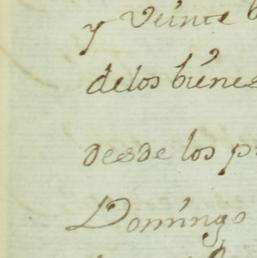 y veinte
delos bienes
desde los
Domingo